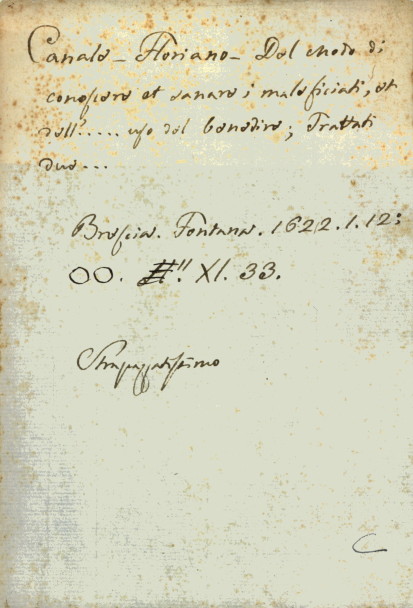 Canale - Floriano - Del modo di
conoscere et sanare i maleficiati, et
dell'.... uso del benedire; Trattati
due...
Brescia. Fontana. 1622. 1. 12:
OO. #" XI. 33.
Strapazzatissimo
C